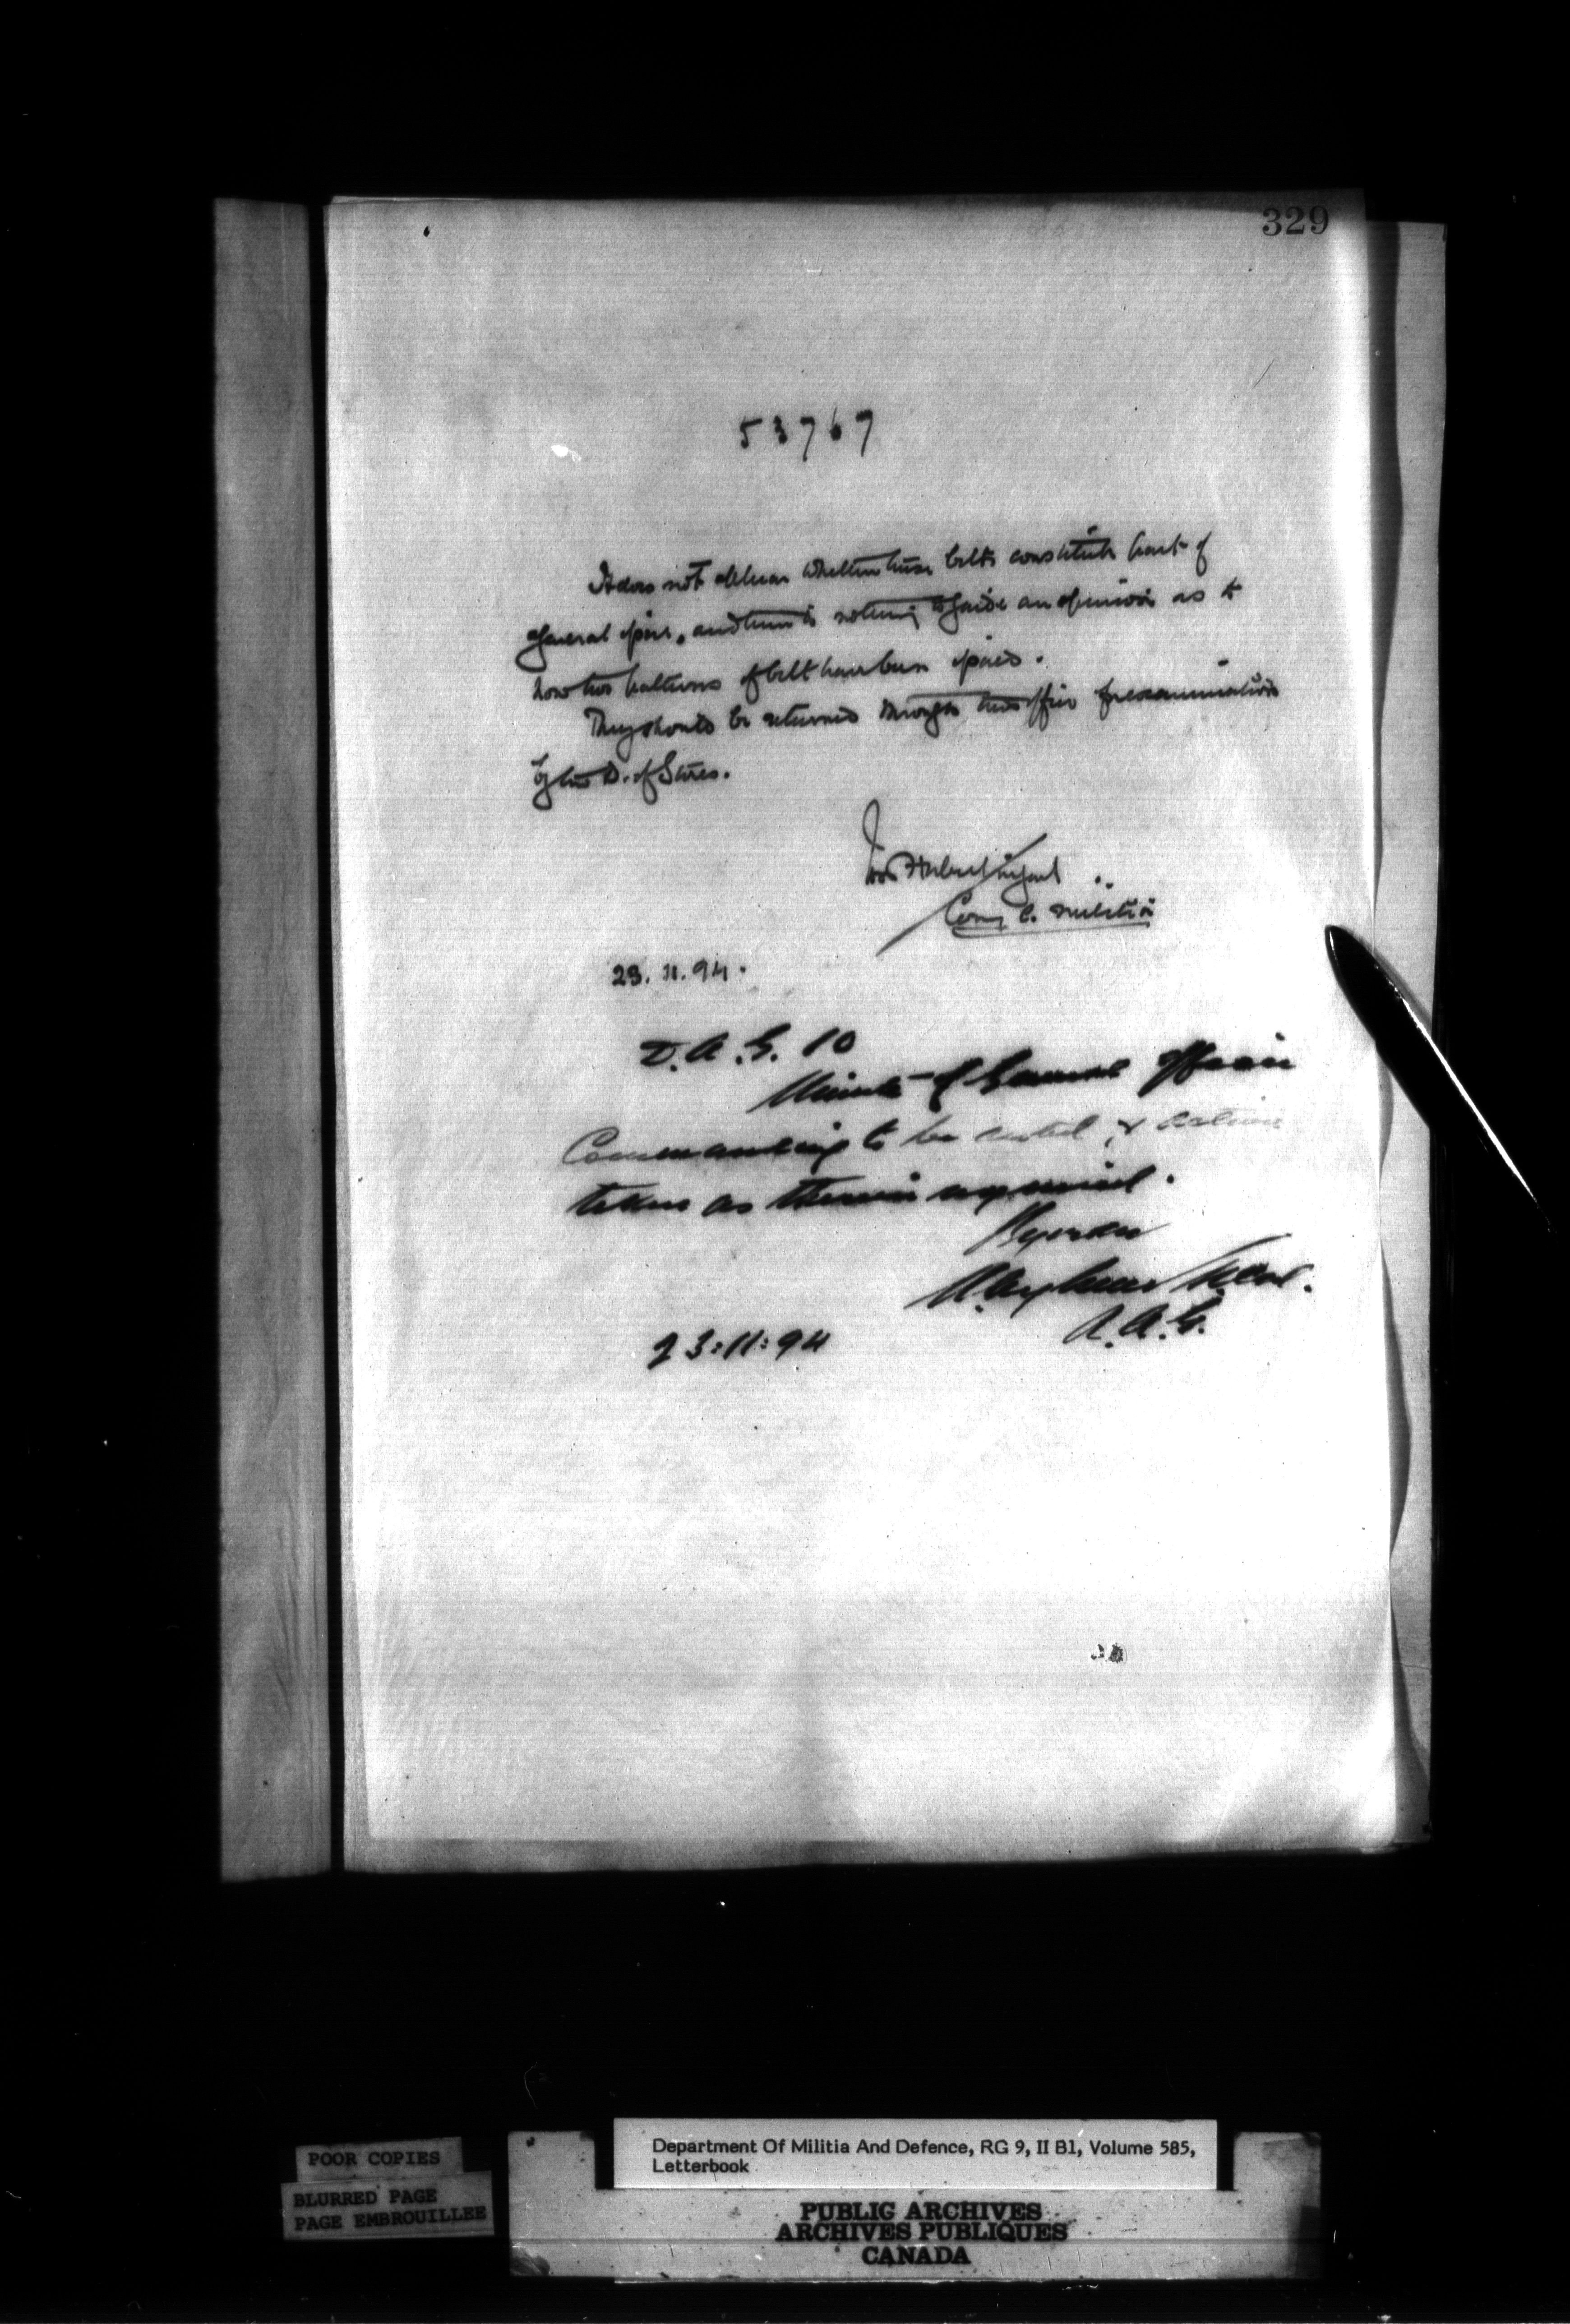 329
53767
It does not appear whether these belts constitute part of
general issue, and there is nothing to guide an opinion as to
how two patterns of belt have been issued.
They should be returned through this office for examination
by the D. of Stores.
Comg C. Militia
23.11.94.
D.A.G. 10
Minute of General Officer
Commanding to be noted & action
taken as therein required.
By order
A.A.G.
23:11:94
POOR COPIES
BLURRED PAGE
PAGE EMBROUILLEE
Department Of Militia And Defence, RG 9, II B1, Volume 585,
Letterbook
PUBLIC ARCHIVES
ARCHIVES PUBLIQUES
CANADA